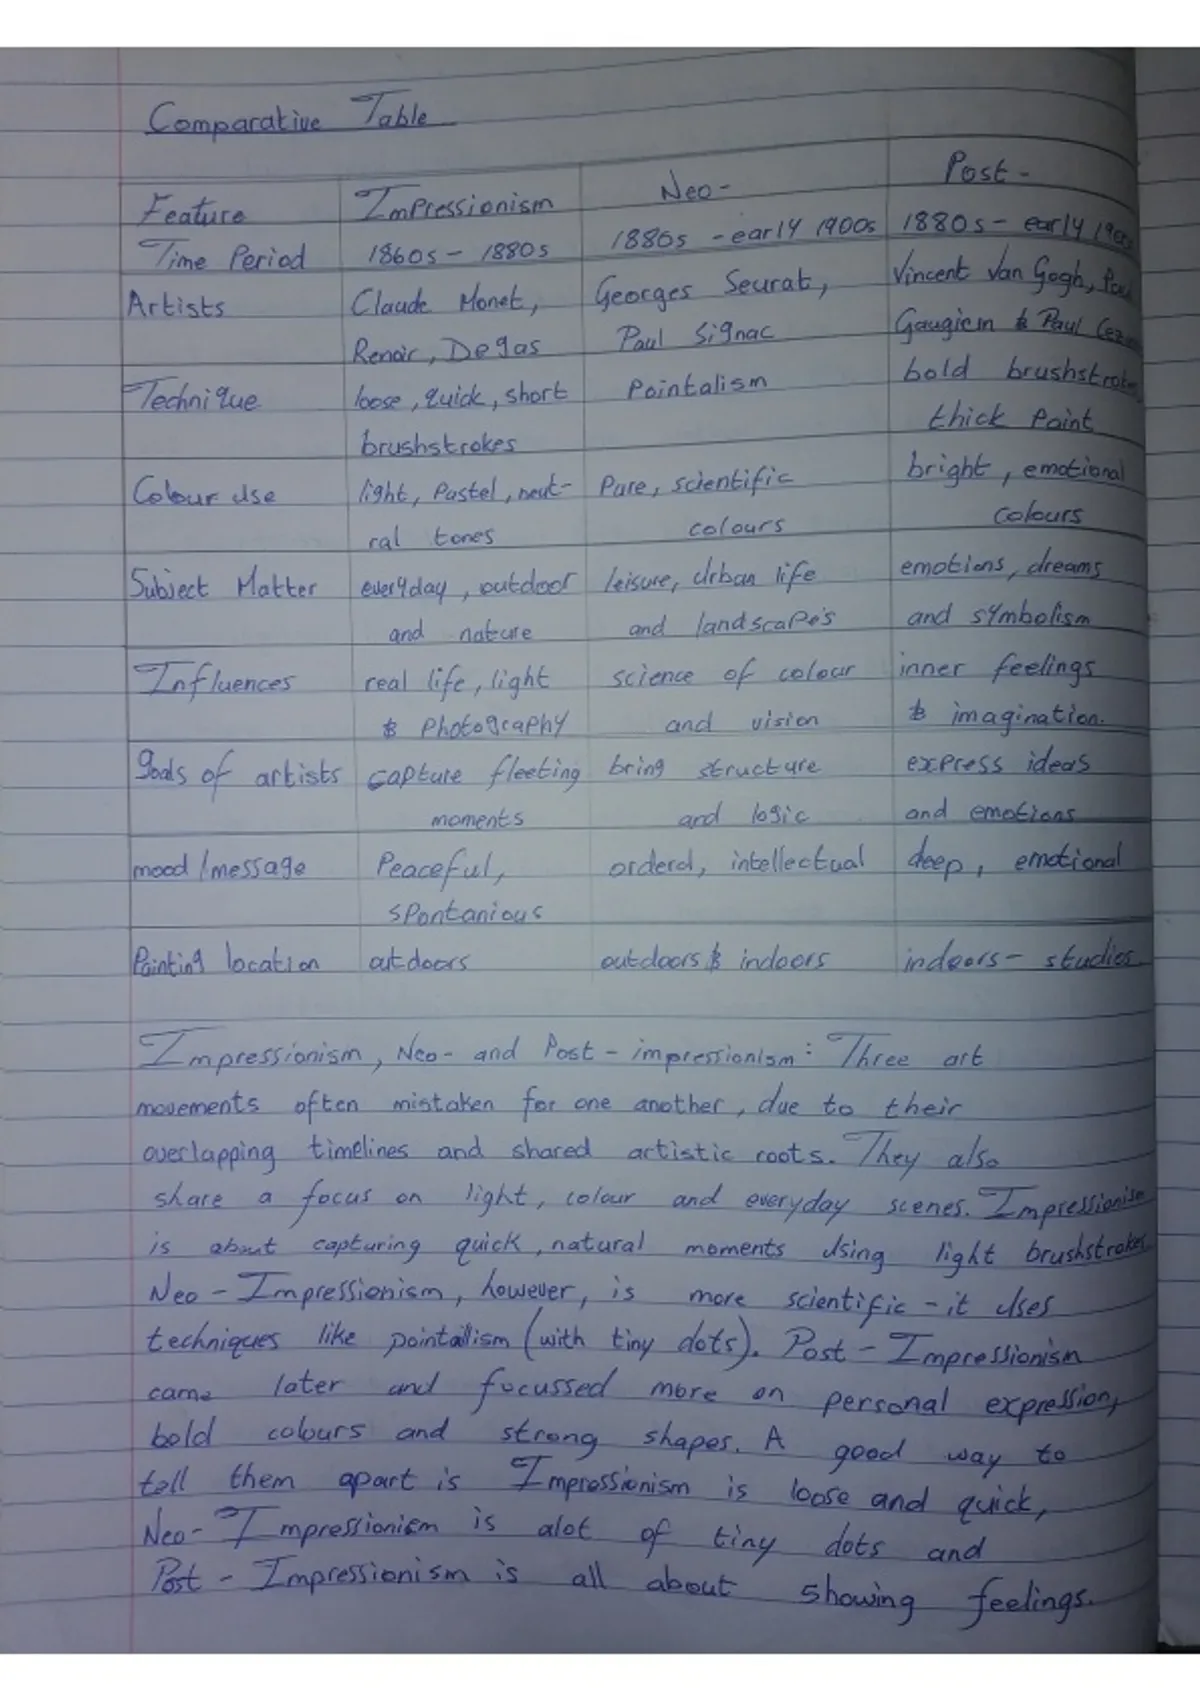 Comparative Table
Feature Impressionism Neo- Post-
Time Period 1860s - 1880s 1880s - early 1900s 1880s - early 1900s
Artists Claude Monet, Georges Seurat, Vincent Van Gogh, Paul
Renoir, Degas Paul Signac Gaugiem & Paul
Technique loose, quick, short Pointalism bold brushstrokes
brushstrokes thick Paint
Colour Use light, Pastel, neut- Pure, scientific bright, emotional
ral tones colours colours
Subject Matter everyday, outdoor leisure, Urban life emotions, dreams
and nature and landscapes and symbolism
Influences real life, light science of colour inner feelings
& Photography and vision & imagination.
goals of artists capture fleeting bring structure express ideas
moments and logic and emotions
mood/message Peaceful, orderd, intellectual deep, emotional
spontanious
Painting location outdoors outdoors & indoors indoors- studios
Impressionism, Neo- and Post-impressionism: Three art
movements often mistaken for one another, due to their
overlapping timelines and shared artistic roots. They also
share a focus on light, colour and everyday scenes. Impressionism
is about capturing quick, natural moments Using light brushstrokes
Neo-Impressionism, however, is more scientific - it Uses
techniques like pointallism (with tiny dots). Post-Impressionism
came later and focussed more on personal expression,
bold colours and strong shapes. A good way to
tell them apart is Impressionism is loose and quick,
Neo-Impressionism is alot of tiny dots and
Post-Impressionism is all about showing feelings.